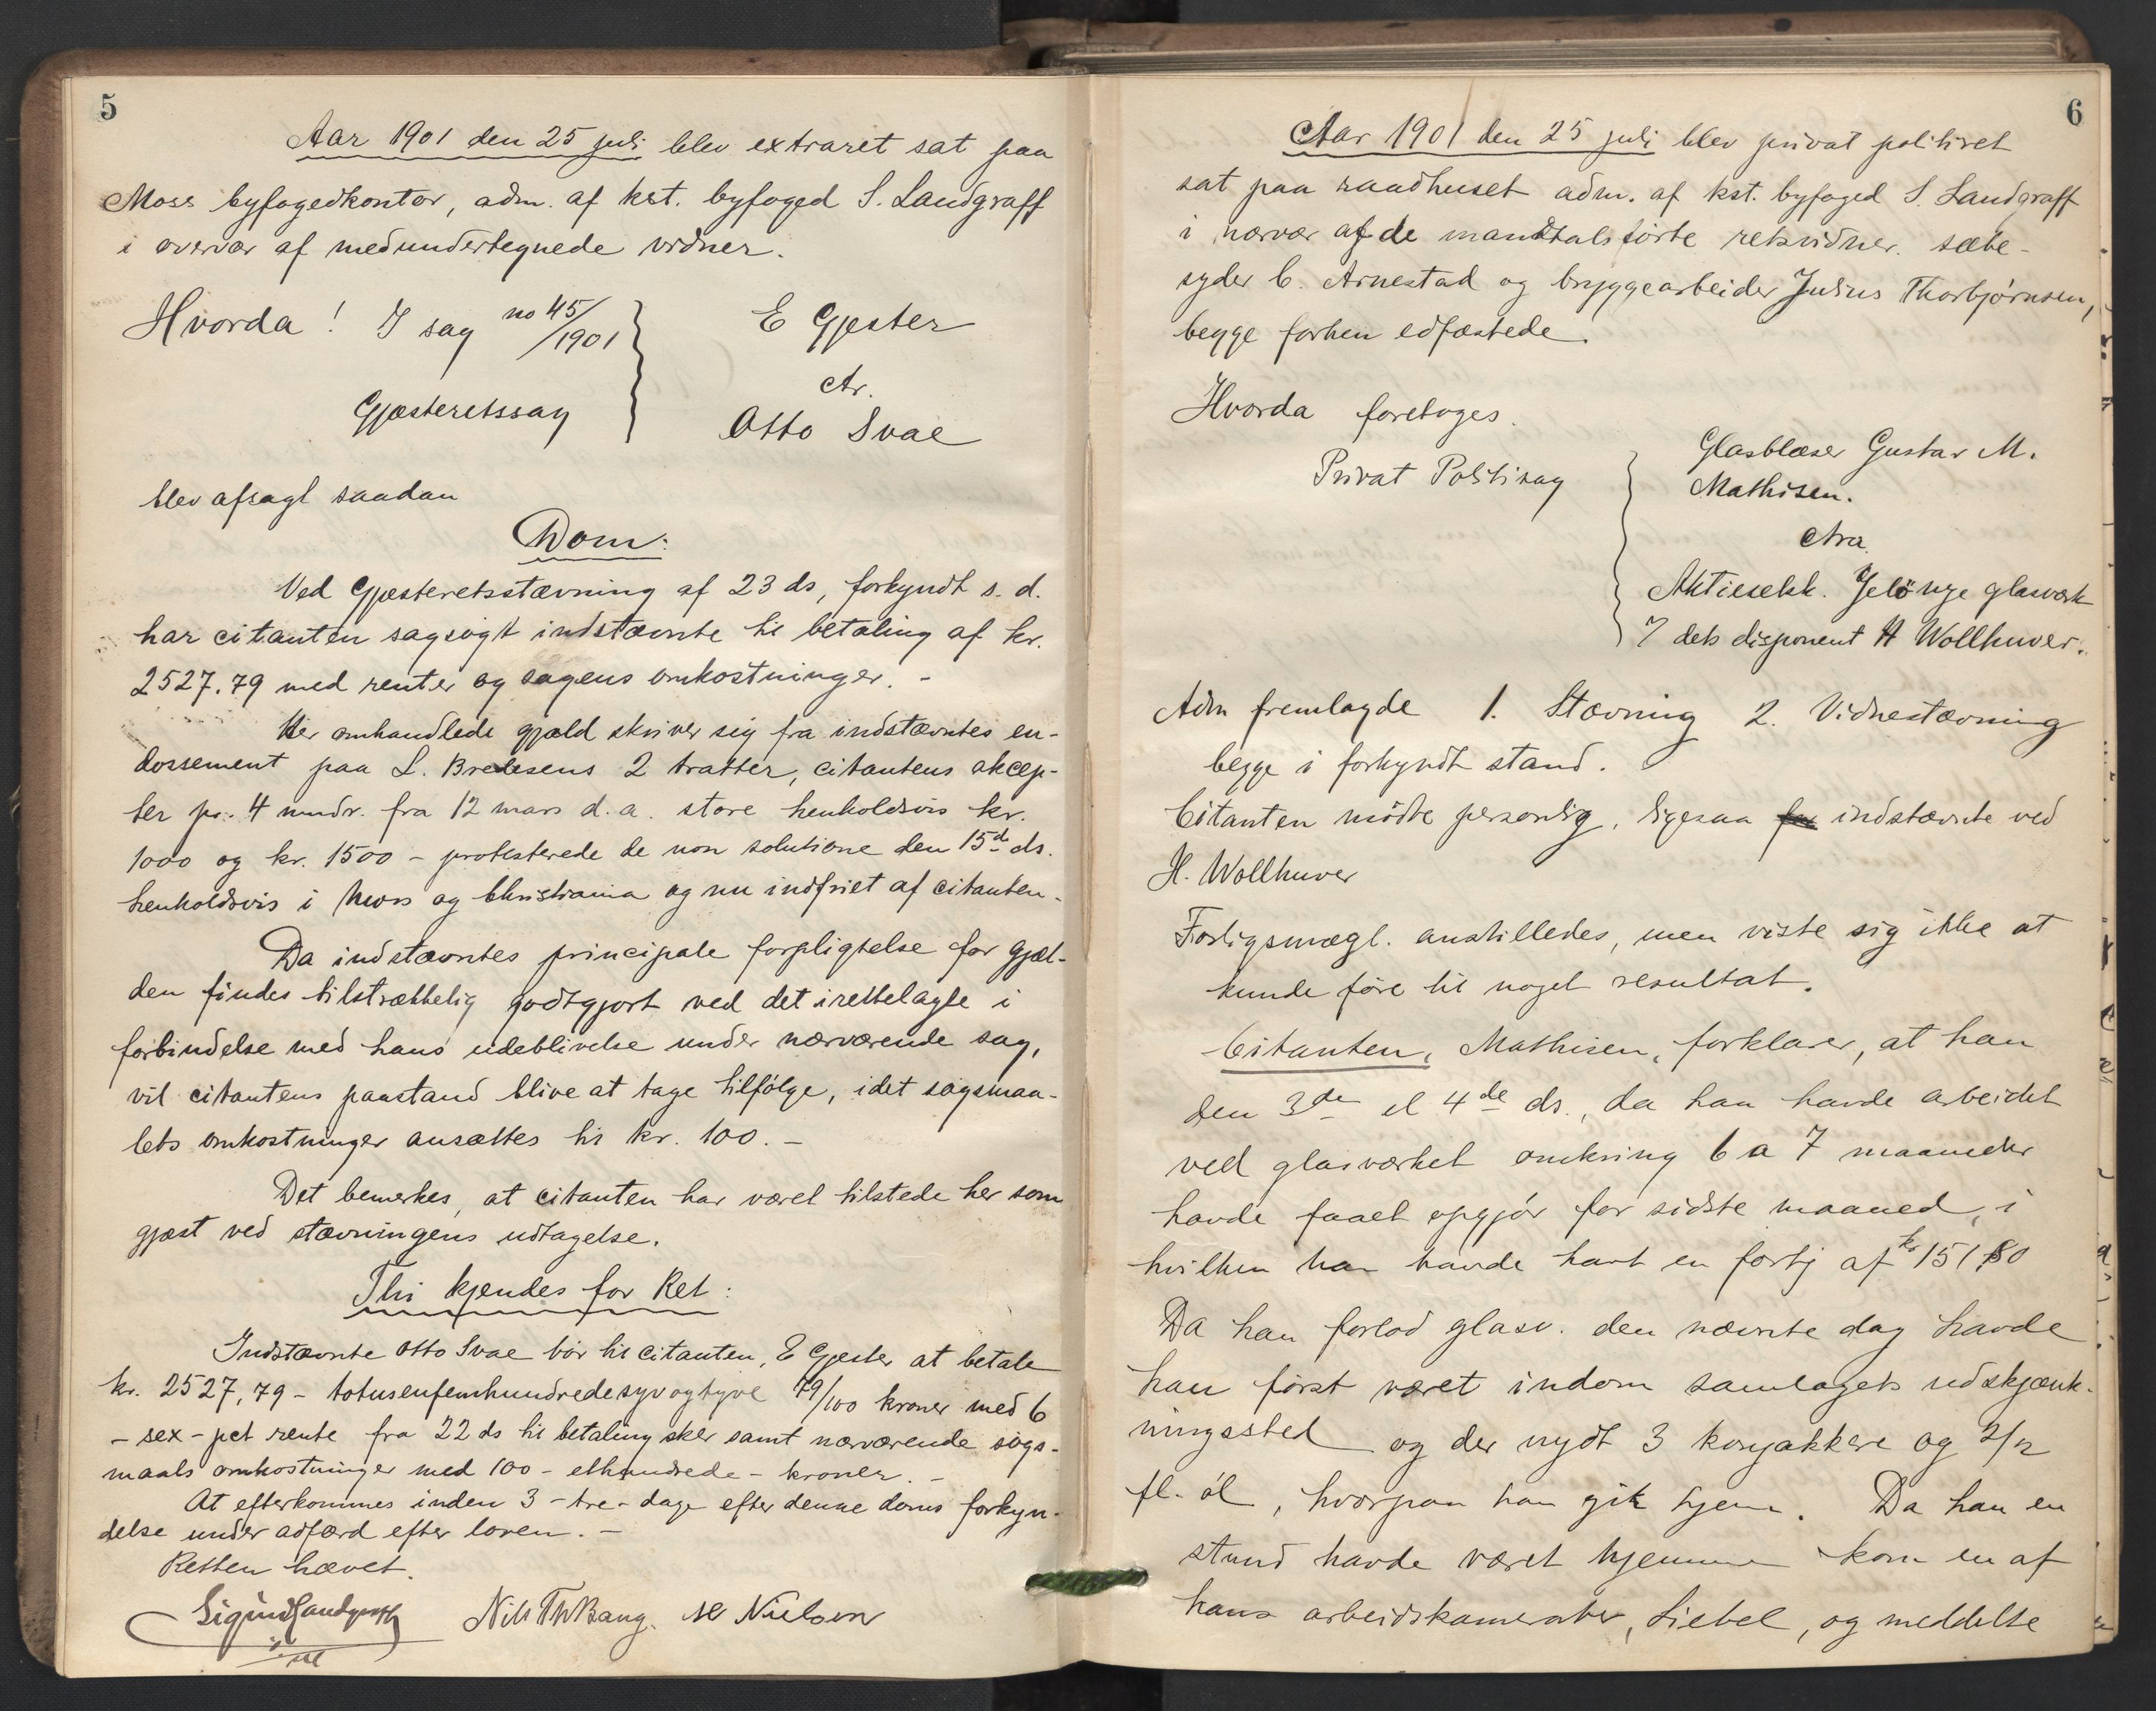 5
Aar 1901 den 25 juli blev extraret sat paa
Moss byfogedkontor, adm. af kst. byfoged S. Landgraff
i overvær af medundertegnede vidner.
Hvorda! I sag no 45/1901
Gjæsteretssag
E Gjester
ctr.
Otto Svae
blev afsagt saadan
Dom:
Ved Gjæsteretsstævning af 23 ds, forkyndt s. d.
har citanten sagsøgt indstævnte til betaling af kr.
2527.79 med renter og sagens omkostninger. -
Her omhandlede gjæld skriver sig fra indstævntes en-
dossement paa L. Bredesens 2 tratter, citantens akcep-
ter pr. 4 mndr. fra 12 mars d. a. store henholdsvis kr.
1000 og kr. 1500 - protesterede de non solutione den 15de ds.
henholdsvis i Moss og Christiania og nu indfriet af citanten.
Da indstævntes principale forpligtelse for gjæl-
den findes tilstrækkelig godtgjort ved det irettelagte i
forbindelse med hans udeblivelse under nærværende sag,
vil citantens paastand blive at tage tilfølge, idet søgsmaa-
lets omkostninger ansættes til kr. 100. -
Det bemerkes, at citanten har været tilstede her som
gjæst ved stævningens udtagelse.
Thi kjendes for Ret:
Indstævnte Otto Svae bør til citanten, E Gjester at betale
kr. 2527,79 - totusenfemhundredesyvogtyve 79/100 kroner med 6
- sex - pct rente fra 22 ds til betaling sker samt nærværende søgs-
maals omkostninger med 100 - ethundrede - kroner. -
At efterkommes inden 3 - tre - dage efter denne doms forkyn-
delse under adfærd efter loven. -
Retten hævet.
Sigurd Landgraff Nils Th Bang. Nielsen
6
Aar 1901 den 25 juli blev privat politiret
sat paa raadhuset adm. af kst. byfoged S. Landgraff
i nærvær af de mandtalsførte retsvidner. sæbe-
syder C. Arnestad og bryggearbeider Julius Thorbjørnsen,
begge forhen edfæstede.
Hvorda foretoges.
Privat Politisag
Glasblæser Gustav M.
Mathisen.
ctra
Aktieselsk. Jelö nye glasværk
v dets disponent H Wollhuver.
Adm fremlagde 1. Stævning 2. Vidnestævning
begge i forkyndt stand.
Citanten mödte personlig, ligesaa for indstævnte ved
H. Wollhuver
Forligsmægl. anstilledes, men viste sig ikke at
kunde före til noget resultat.
Citanten, Mathisen, forklarer, at han
den 3de el 4de ds., da han havde arbeidet
ved glasværket omkring 6 a 7 maaneder
havde faaet opgjör for sidste maaned, i
hvilken han havde havt en fortj af kr 151,80
Da han forlod glasv. den nævnte dag havde
han först været indom samlagets udskjænk-
ningssted og der nydt 3 konjakkere og 2/2
fl. øl, hvorpaa han gik hjem. Da han en
stund havde været hjemme kom en af
hans arbeidskamerater, Siebel, og meddelte